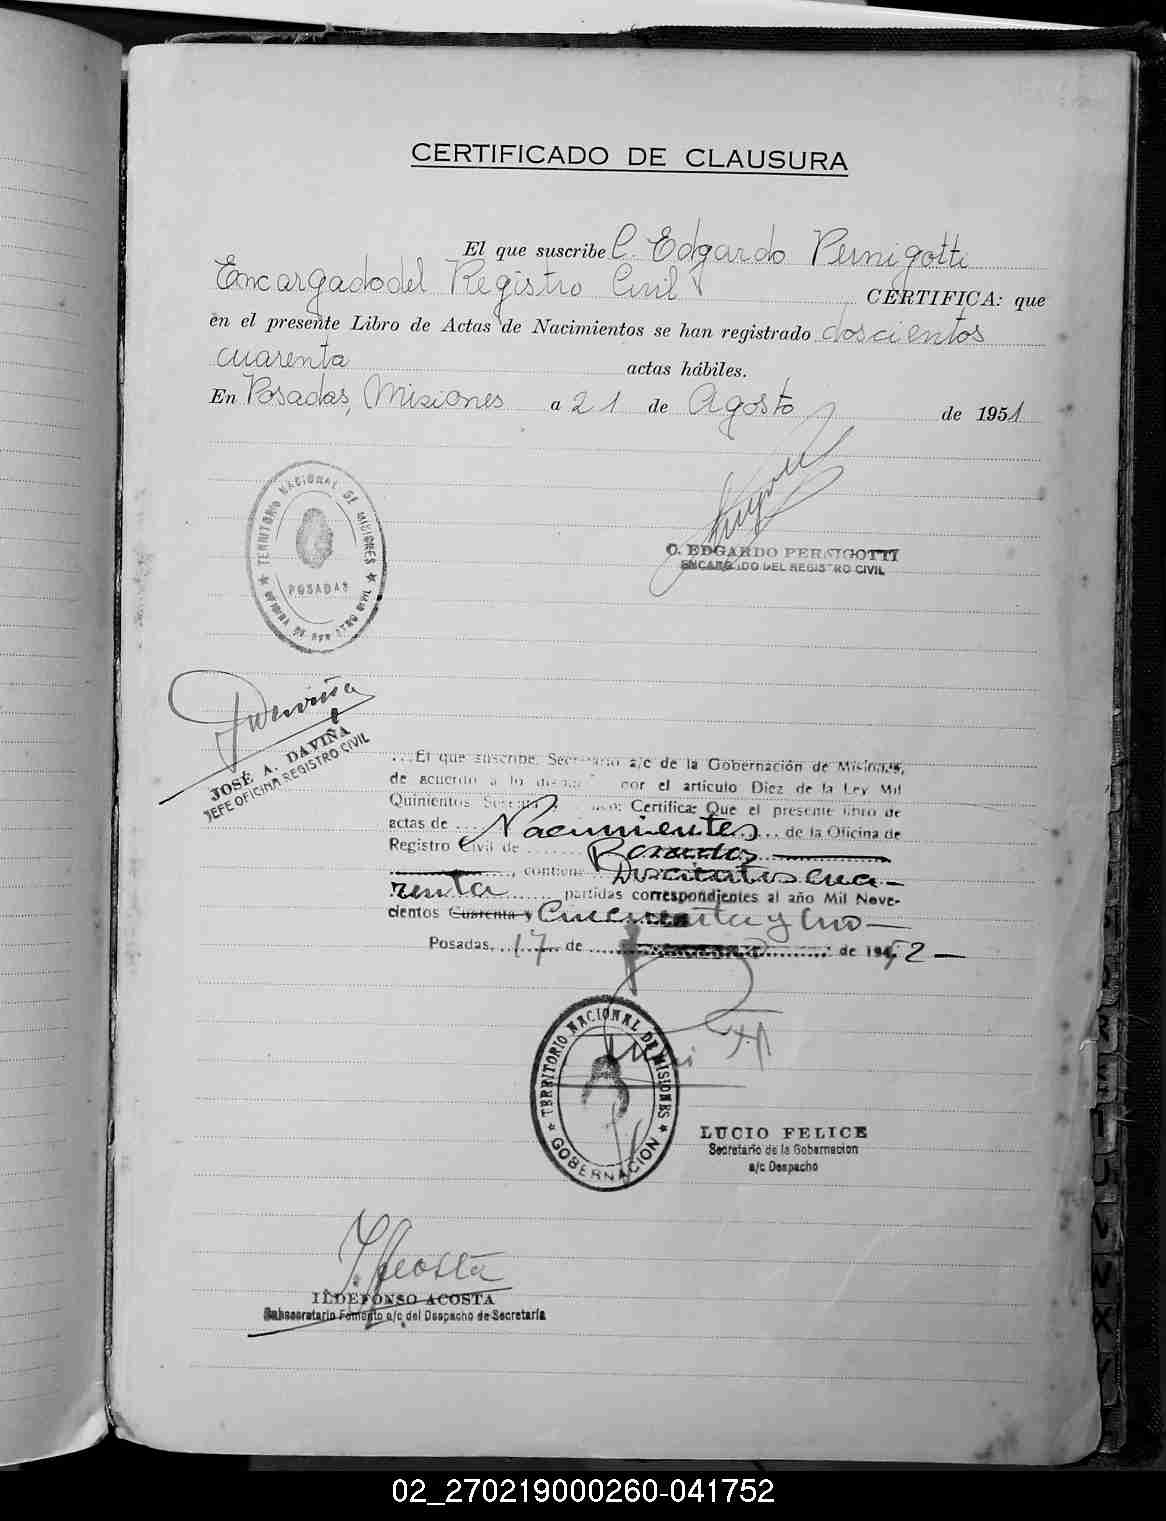 CERTIFICADO DE CLAUSURA
El que suscribe C. Edgardo Pernigotti
Encargado del Registro Civil CERTIFICA: que
en el presente Libro de Actas de Nacimientos se han registrado doscientos
cuarenta actas hábiles.
En Posadas, Misiones a 21 de Agosto de 1951
TERRITORIO NACIONAL DE MISIONES
POSADAS
OFICINA DE REGISTRO CIVIL
C. EDGARDO PERNIGOTTI
ENCARGADO DEL REGISTRO CIVIL
Daviña
JOSÉ A. DAVIÑA
JEFE OFICINA REGISTRO CIVIL
...El que suscribe, Secretario a/c de la Gobernación de Misiones,
de acuerdo a lo por el artículo Diez de la Ley Mil
Quinientos Certifica: Que el presente libro de
actas de ... Nacimientos ... de la Oficina de
Registro Civil de ........ Posadas
........, contiene Doscientos cua-
renta ........ partidas correspondientes al año Mil Nove-
cientos Cuarenta y Cincuenta y Uno —
Posadas, 17 de ........ de 1952 —
TERRITORIO NACIONAL DE MISIONES
GOBERNACION
LUCIO FELICE
Secretario de la Gobernacion
a/c Despacho
I. Acosta
ILDEFONSO ACOSTA
Subsecretario Fomento a/c del Despacho de Secretaría
02_270219000260-041752